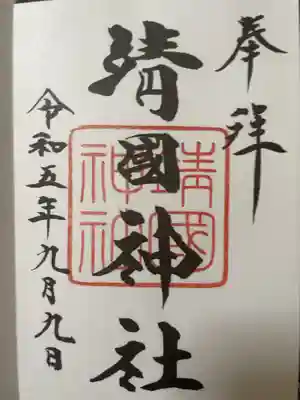 奉拝
靖國神社
靖國神社
令和五年九月九日